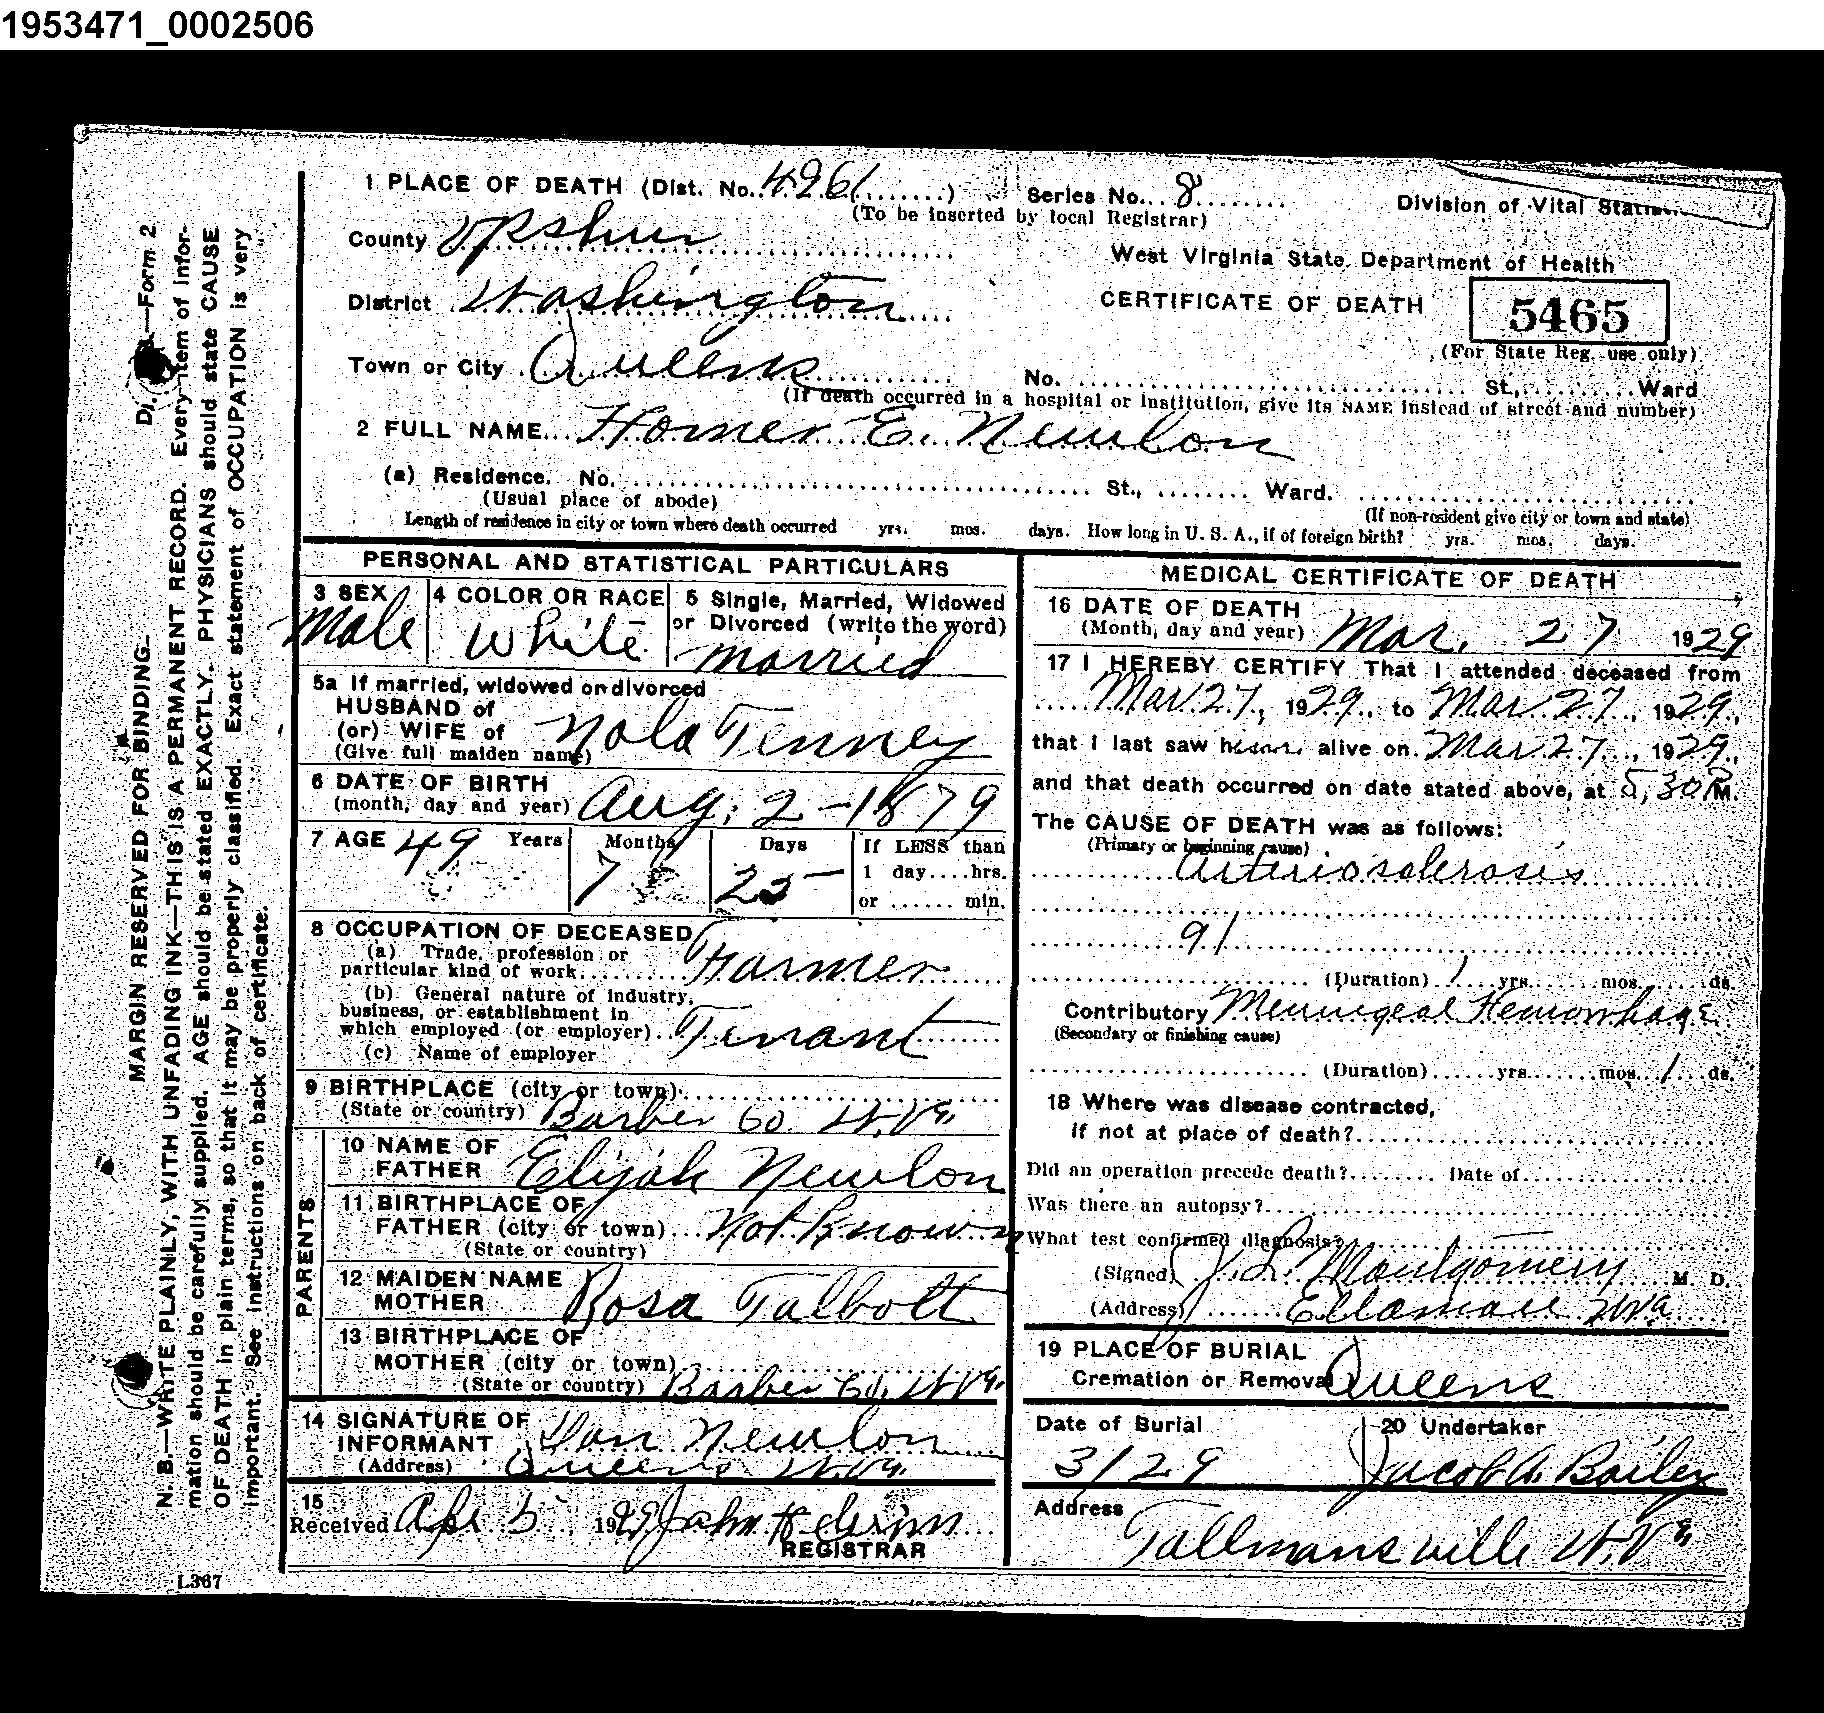 1953471_0002506
1 PLACE OF DEATH (Dist. No. 4261 ) Series No. 8 Division of Vital
(To be inserted by local Registrar)
County Upshur
West Virginia State Department of Health
District Washington CERTIFICATE OF DEATH 5465
(For State Reg. use only)
Town or City Queens No. St., Ward
(If death occurred in a hospital or institution, give its NAME instead of street and number)
2 FULL NAME Homer E. Newlon
(a) Residence. No. St., Ward.
(Usual place of abode) (If non-resident give city or town and state)
Length of residence in city or town where death occurred yrs. mos. days. How long in U. S. A., if of foreign birth? yrs. mos. days.
PERSONAL AND STATISTICAL PARTICULARS
3 SEX 4 COLOR OR RACE 5 Single, Married, Widowed
or Divorced (write the word)
Male White married
5a If married, widowed or divorced
HUSBAND of
(or) WIFE of Nola Tenney
(Give full maiden name)
6 DATE OF BIRTH
(month, day and year) Aug. 2 - 1879
7 AGE 49 Years Months Days If LESS than
7 25 1 day....hrs.
or ...... min.
8 OCCUPATION OF DECEASED
(a) Trade, profession or
particular kind of work Farmer
(b) General nature of industry,
business, or establishment in
which employed (or employer) Tenant
(c) Name of employer
9 BIRTHPLACE (city or town)
(State or country) Barber Co. W.Va
PARENTS
10 NAME OF
FATHER Elijah Newlon
11 BIRTHPLACE OF
FATHER (city or town) Not Known
(State or country)
12 MAIDEN NAME
MOTHER Rosa Talbott
13 BIRTHPLACE OF
MOTHER (city or town)
(State or country) Barber Co. W.Va.
14 SIGNATURE OF
INFORMANT Dan Newlon
(Address) Queens W.Va.
15
Received Apr 5 1929 John
REGISTRAR
MEDICAL CERTIFICATE OF DEATH
16 DATE OF DEATH
(Month, day and year) Mar. 27 1929
17 I HEREBY CERTIFY That I attended deceased from
Mar 27, 1929, to Mar 27, 1929,
that I last saw him alive on Mar 27, 1929,
and that death occurred on date stated above, at 5,30 P M.
The CAUSE OF DEATH was as follows:
(Primary or beginning cause)
Arteriosclerosis
91
(Duration) 1 yrs. mos. ds.
Contributory Meningeal Hemorrhage
(Secondary or finishing cause)
(Duration) yrs. mos. 1 ds.
18 Where was disease contracted,
if not at place of death?
Did an operation precede death? Date of
Was there an autopsy?
What test confirmed diagnosis?
(Signed) J. L. Montgomery M. D.
(Address) Ellamore W Va
19 PLACE OF BURIAL
Cremation or Removal Queens
Date of Burial 20 Undertaker
3/29 Jacob A. Bailey
Address
Tallmansville W.Va
L367
MARGIN RESERVED FOR BINDING.
Form 2
N. B.—WRITE PLAINLY, WITH UNFADING INK—THIS IS A PERMANENT RECORD. Every item of infor-
mation should be carefully supplied. AGE should be stated EXACTLY. PHYSICIANS should state CAUSE
OF DEATH in plain terms, so that it may be properly classified. Exact statement of OCCUPATION is very
important. See instructions on back of certificate.